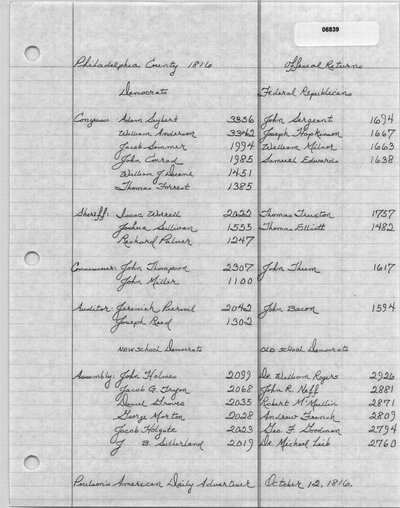 06839
Philadelphia County 1816 Official Returns
Democrats Federal Republicans
Congress: Adam Seybert 3356 John Sergeant 1694
William Anderson 3342 Joseph Hopkinson 1667
Jacob Sommer 1994 William Milnor 1663
John Conrad 1985 Samuel Edwards 1638
William J Duane 1451
Thomas Forrest 1385
Sheriff: Isaac Worrell 2022 Thomas Truxton 1757
Joshua Sullivan 1555 Thomas Elliott 1482
Richard Palmer 1247
Commissioner: John Thompson 2307 John Thum 1617
John Miller 1100
Auditor: Jeremiah Peirsol 2042 John Bacon 1594
Joseph Reed 1302
NEW SCHOOL Democrats OLD SCHOOL Democrats
Assembly: John Holmes 2099 Dr. William Rogers 2926
Jacob G. Tryon 2068 John R. Neff 2881
Daniel Groves 2035 Robert McMullin 2871
George Morton 2028 Andrew French 2809
Jacob Holgate 2023 Geo. F Goodman 2794
J B. Sutherland 2019 Dr. Michael Leib 2760
Poulson's American Daily Advertiser October 12, 1816.